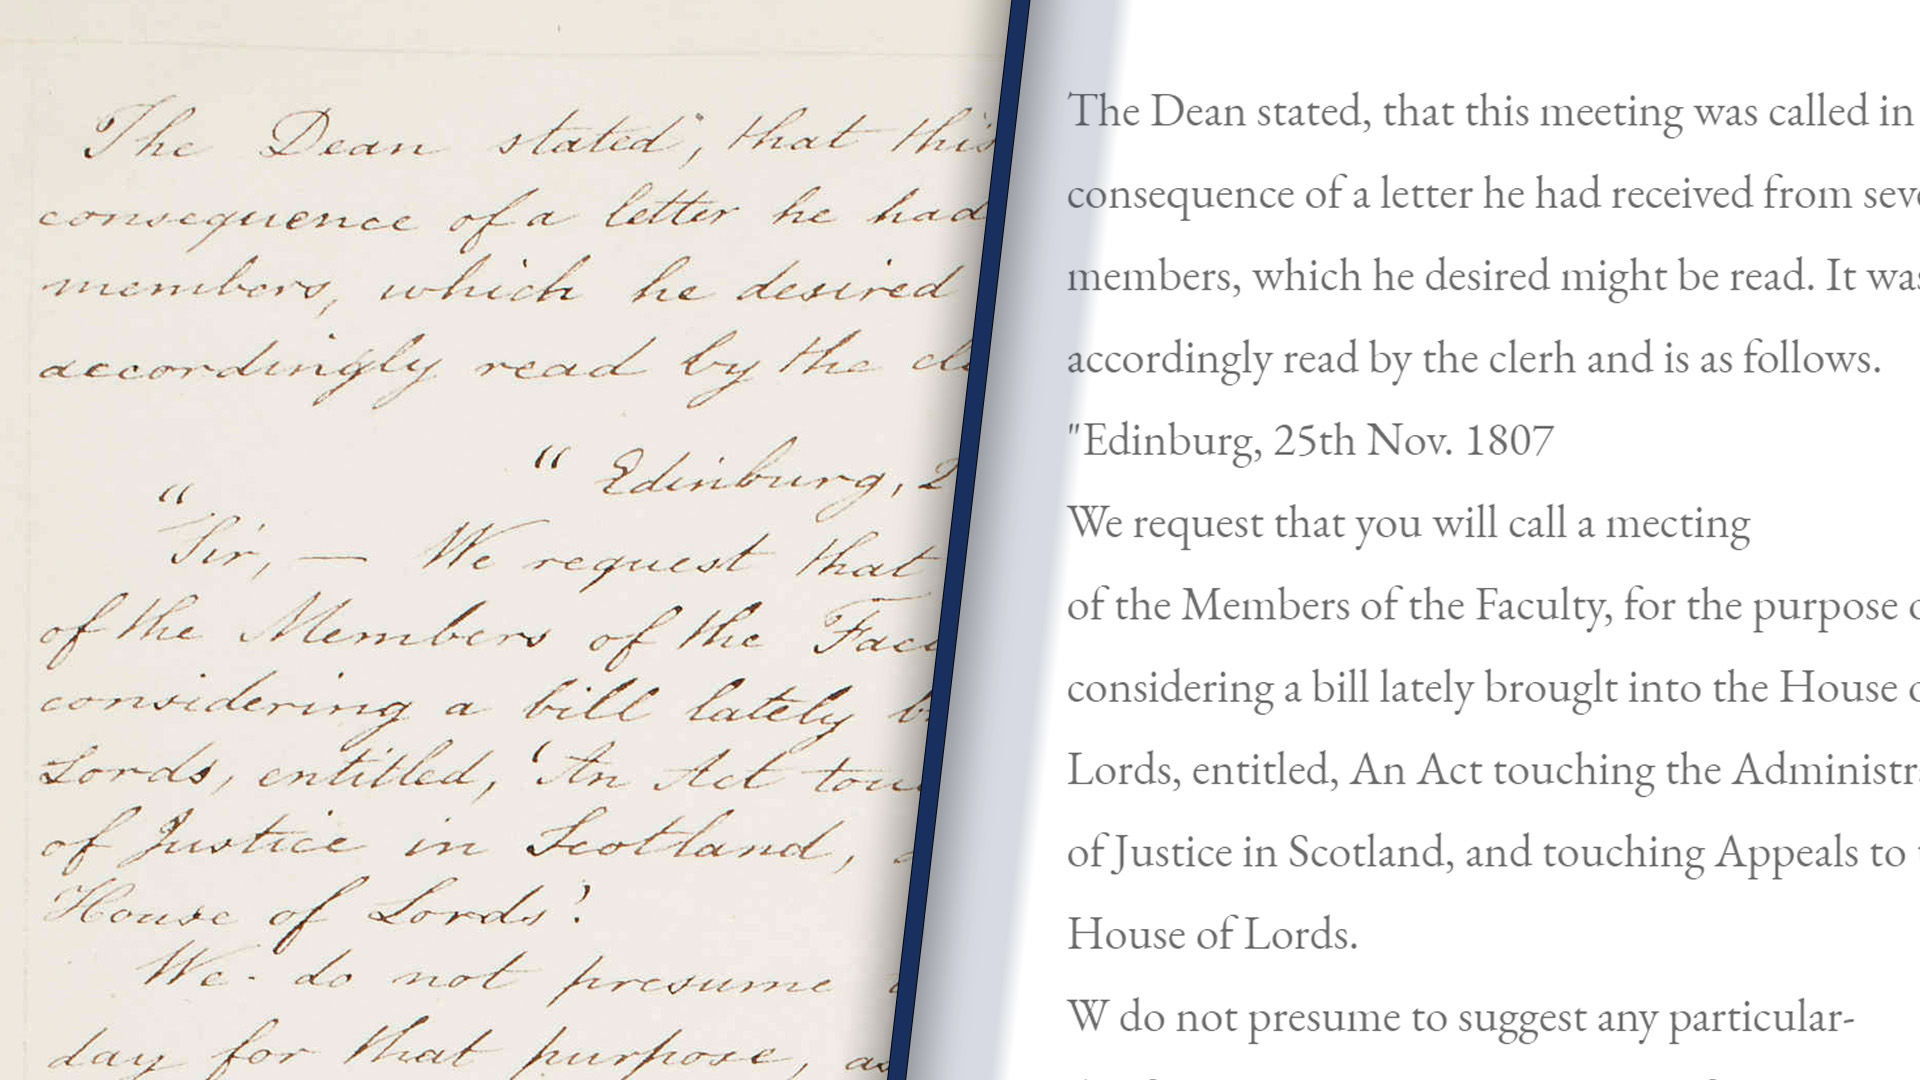 The Dean stated, that this
consequence of a letter he had
members, which he desired
accordingly read by the
"Edinburg,
"Sir, — We request that
of the Members of the
considering a bill lately
Lords, entitled, 'An Act
of Justice in Scotland,
House of Lords'.
We do not presume
day for that purpose, as
The Dean stated, that this meeting was called in
consequence of a letter he had received from
members, which he desired might be read. It was
accordingly read by the clerh and is as follows.
"Edinburg, 25th Nov. 1807
We request that you will call a mecting
of the Members of the Faculty, for the purpose
considering a bill lately brouglt into the House
Lords, entitled, An Act touching the
of Justice in Scotland, and touching Appeals to
House of Lords.
W do not presume to suggest any particular-